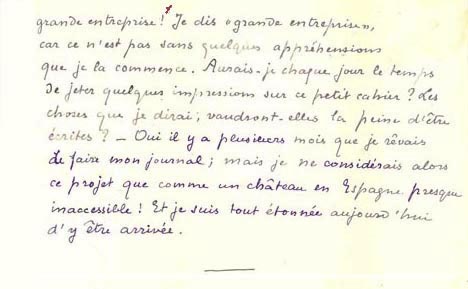 grande entreprise! Je dis "grande entreprise",
car ce n'est pas sans quelques appréhensions
que je la commence. Aurais-je chaque jour le temps
de jeter quelques impressions sur ce petit cahier? Les
choses que je dirai, vaudront-elles la peine d'être
écrites? - Oui il y a plusieurs mois que je rêvais
de faire mon journal; mais je ne considérais alors
ce projet que comme un château en Espagne presque
inaccessible! Et je suis tout étonnée aujourd'hui
d'y être arrivée.